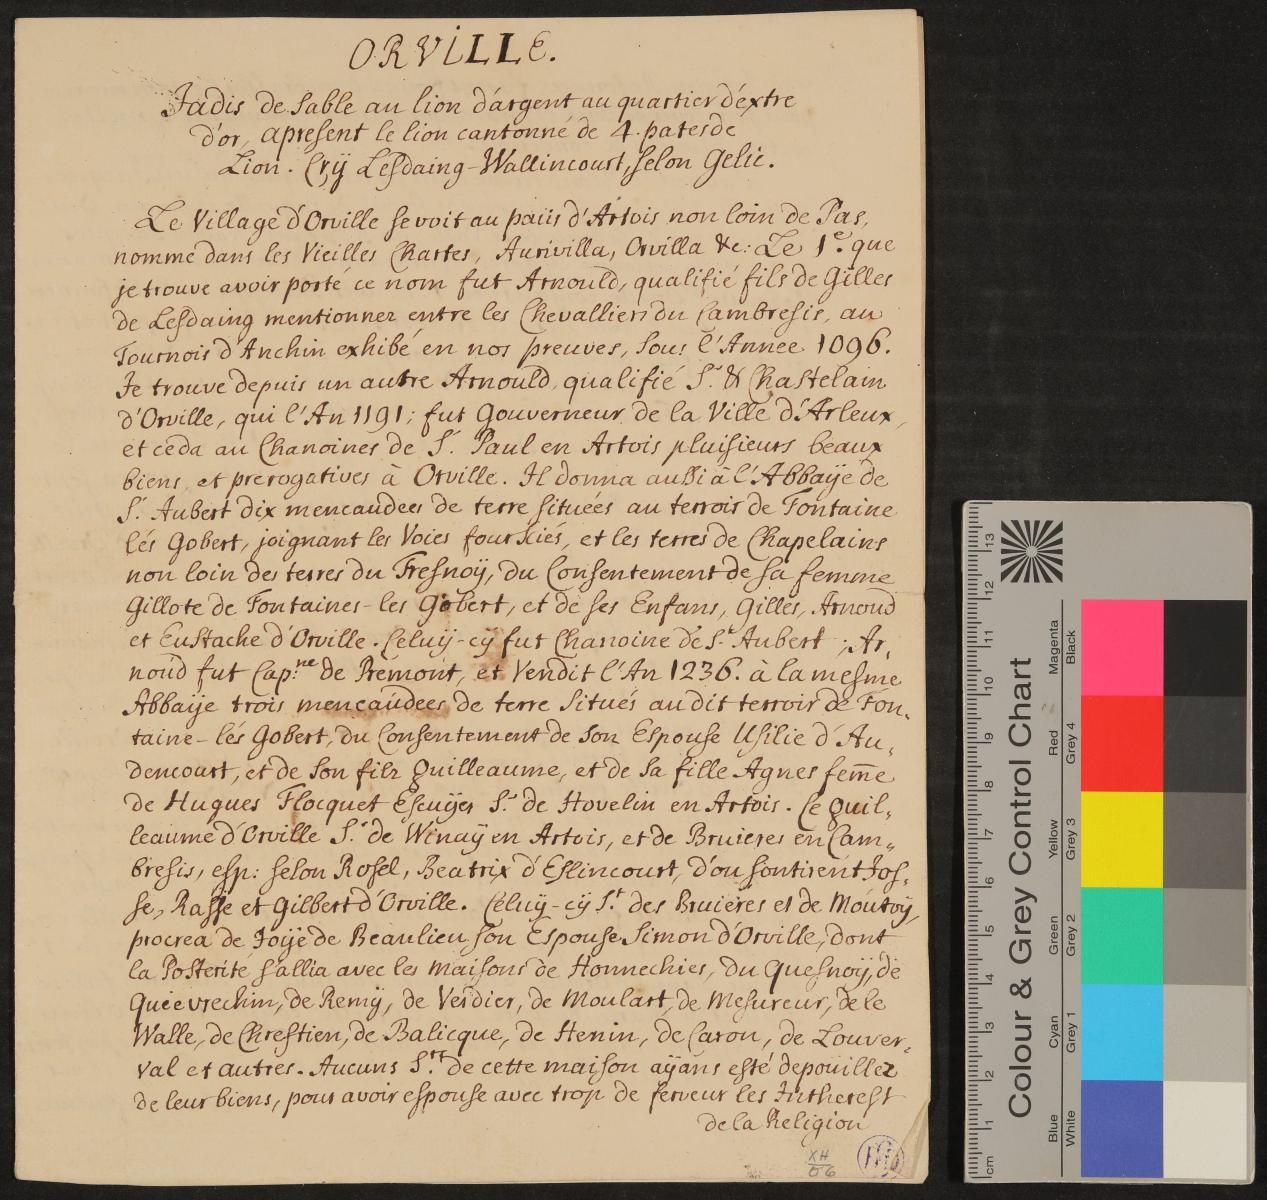 ORViLLE.
Jadis de sable au lion d'argent au quartier d'extre
d'or, apresent le lion cantonné de 4. pates de
Lion. Crÿ Lesdaing-Wallincourt, selon Gelic.
Le Village d'Orville se voit au païis d'Artois non loin de Pas,
nommé dans les Vieilles Chartes, Aurivilla, Orvilla &c: Le 1.e que
je trouve avoir porté ce nom fut Arnould, qualifié fils de Gilles
de Lesdaing mentionnez entre les Chevalliers du Cambresis, au
Tournois d'Anchin exhibé en nos preuves, sous l'Annee 1096.
Je trouve depuis un autre Arnould, qualifié S.r & Chastelain
d'Orville, qui l'An 1191; fut Gouverneur de la Ville d'Arleux,
et ceda au Chanoines de S.t Paul en Artois pluisieurs beaux
biens, et prerogatives à Orville. Il donna aussi à l'Abbaÿe de
S.t Aubert dix mencaudees de terre situées au terrois de Fontaine
lés Gobert, joignant les Voies fourkiés, et les terres de Chapelains
non loin des terres du Fresnoÿ, du Consentement de sa femme
Gillote de Fontaines-les Gobert, et de ses Enfans, Gilles, Arnoud
et Eustache d'Orville. Celuÿ-cÿ fut Chanoine de S.t Aubert; Ar,,
noud fut Cap.ne de Premont, et Vendit l'An 1236. à la mesme
Abbaÿe trois mencaudees de terre situés au dit terroir de Fon,,
taine-lés Gobert, du Consentement de son Espouse Usilie d'Au,,
dencourt, et de son fils Guilleaume, et de sa fille Agnes fem̄e
de Hugues Flocquet Escuÿer S.r de Hovelin en Artois. Ce Guil,,
leaume d'Orville S.r de Winaÿ en Artois, et de Bruieres en Cam,,
bresis, esp: selon Rosel, Beatrix d'Eslincourt, d'ou sontirent Jos,,
se, Rasse et Gilbert d'Orville. Celuÿ-cÿ S.r des Bruieres et de Moutoÿ,
procrea de Joÿe de Beaulieu son Espouse Simon d'Orville, dont
la Posterité s'allia avec les maisons de Honnechies, du Quesnoÿ, de
Quievrechin, de Remÿ, de Verdier, de Moulart, de Mesureur, de le
Walle, de Chrestien, de Balicque, de Henin, de Caron, de Louver,,
val et autres. Aucuns S.rs de cette maison aÿans esté depouillez
de leur biens, pour avoir espouse avec trop de ferveur les Intherest
de la Religion
XH
06
Colour & Grey Control Chart
Magenta
Black
Red
Grey 4
Yellow
Grey 3
Green
Grey 2
Cyan
Grey 1
Blue
White
cm 1 2 3 4 5 6 7 8 9 10 11 12 13